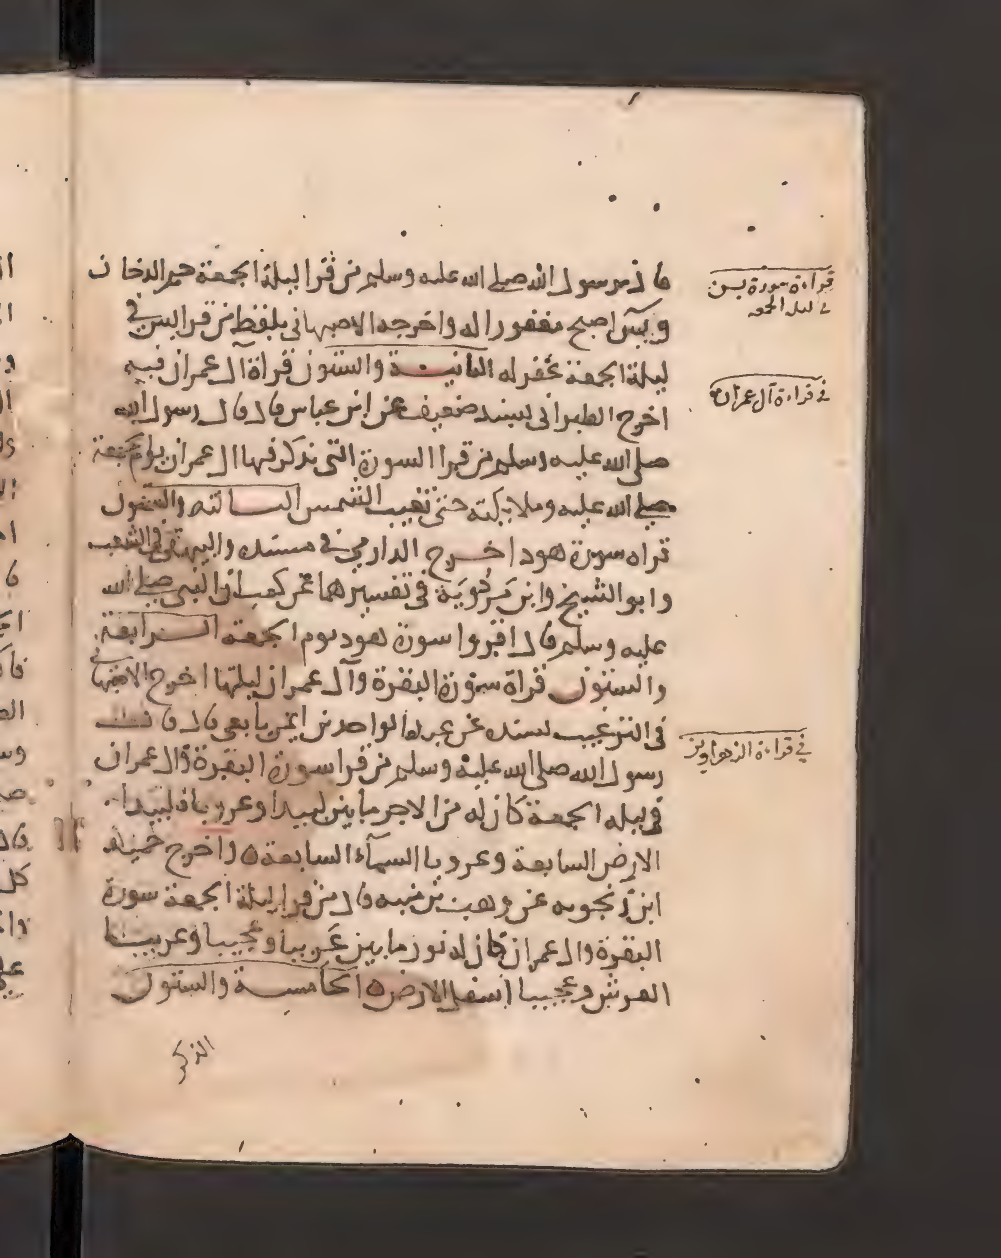 قال رسول الله صلى الله عليه وسلم من قرا ليلة الجمعة حم الدخان
ويس اصبح مغفورا له واخرجه الاصبهاني بلفظ من قرا يس في
ليلة الجمعة غفر له الثانية والستون قراة آل عمران فيه
اخرج الطبراني بسند ضعيف عن ابن عباس قال قال رسول الله
صلى الله عليه وسلم من قرا السورة التي يذكر فيها ال عمران يوم الجمعة
صلى الله عليه وملايكته حتى تغيب الشمس الثالثة والستون
قراه سورة هود اخرج الدارمي في مسنده والبيهقي في الشعب
وابو الشيخ وابن مردوية في تفسيرهما عن كعب ان النبي صلى الله
عليه وسلم قال اقروا سورة هود يوم الجمعة الرابعة
والستون قراة سورة البقرة وآل عمران ليلتها اخرج الاصبهاني
في الترغيب بسنده عن عبد الواحد بن ايمن تابعي قال قال
رسول الله صلى الله عليه وسلم من قرا سورة البقرة وال عمران
في ليله الجمعة كان له من الاجر ما بين لبيدا وعروبا فلبيدا
الارض السابعة وعروبا السمآء السابعة واخرج حميد
ابن زنجويه عن وهب بن منبه قال من قرا ليلة الجمعة سورة
البقرة وال عمران كان له نور ما بين عريبا وعجيبا وعريبا
العرش وعجيبا اسفل الارض الخامسة والستون
الذكر
قراءة سورة يس
في ليلة الجمعه
في قراءة آل عمران
في قراءة الزهراوين